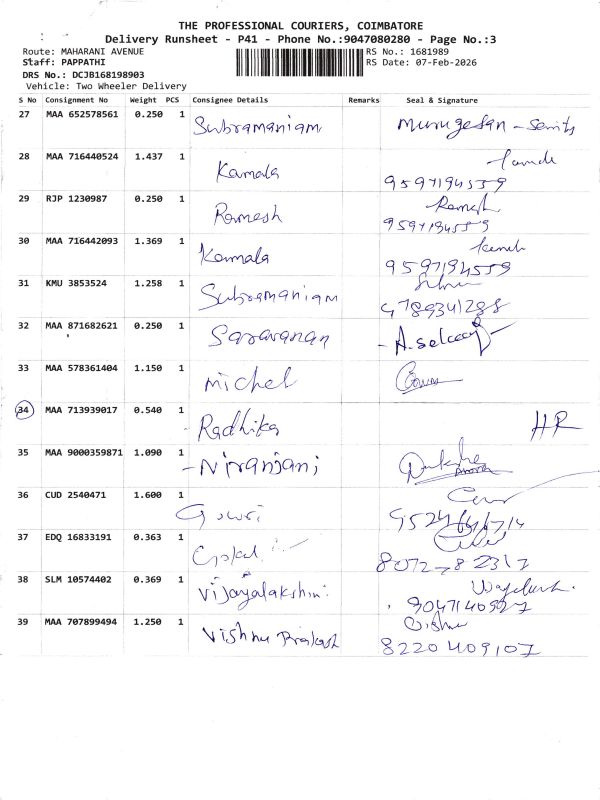 THE PROFESSIONAL COURIERS, COIMBATORE
Delivery Runsheet - P41 - Phone No.:9047080280 - Page No.:3
Route: MAHARANI AVENUE RS No.: 1681989
Staff: PAPPATHI RS Date: 07-Feb-2026
DRS No.: DCJB168198903
Vehicle: Two Wheeler Delivery
S No Consignment No Weight PCS Consignee Details Remarks Seal & Signature
27 MAA 652578561 0.250 1 Subramaniam Murugesan -
28 MAA 716440524 1.437 1 Kamala
9597194559
29 RJP 1230987 0.250 1 Ramesh Ramesh
9597194559
30 MAA 716442093 1.369 1 Kamala
9597194559
31 KMU 3853524 1.258 1 Subramaniam
9789341288
32 MAA 871682621 0.250 1 Saravanan
33 MAA 578361404 1.150 1 Michel
34 MAA 713939017 0.540 1 - Radhika HR
35 MAA 9000359871 1.090 1 - Niranjani
36 CUD 2540471 1.600 1 Gowri
37 EDQ 16833191 0.363 1 Gokul
38 SLM 10574402 0.369 1 Vijayalakshmi
39 MAA 707899494 1.250 1 Vishnu Prakash Vishnu
8220409107